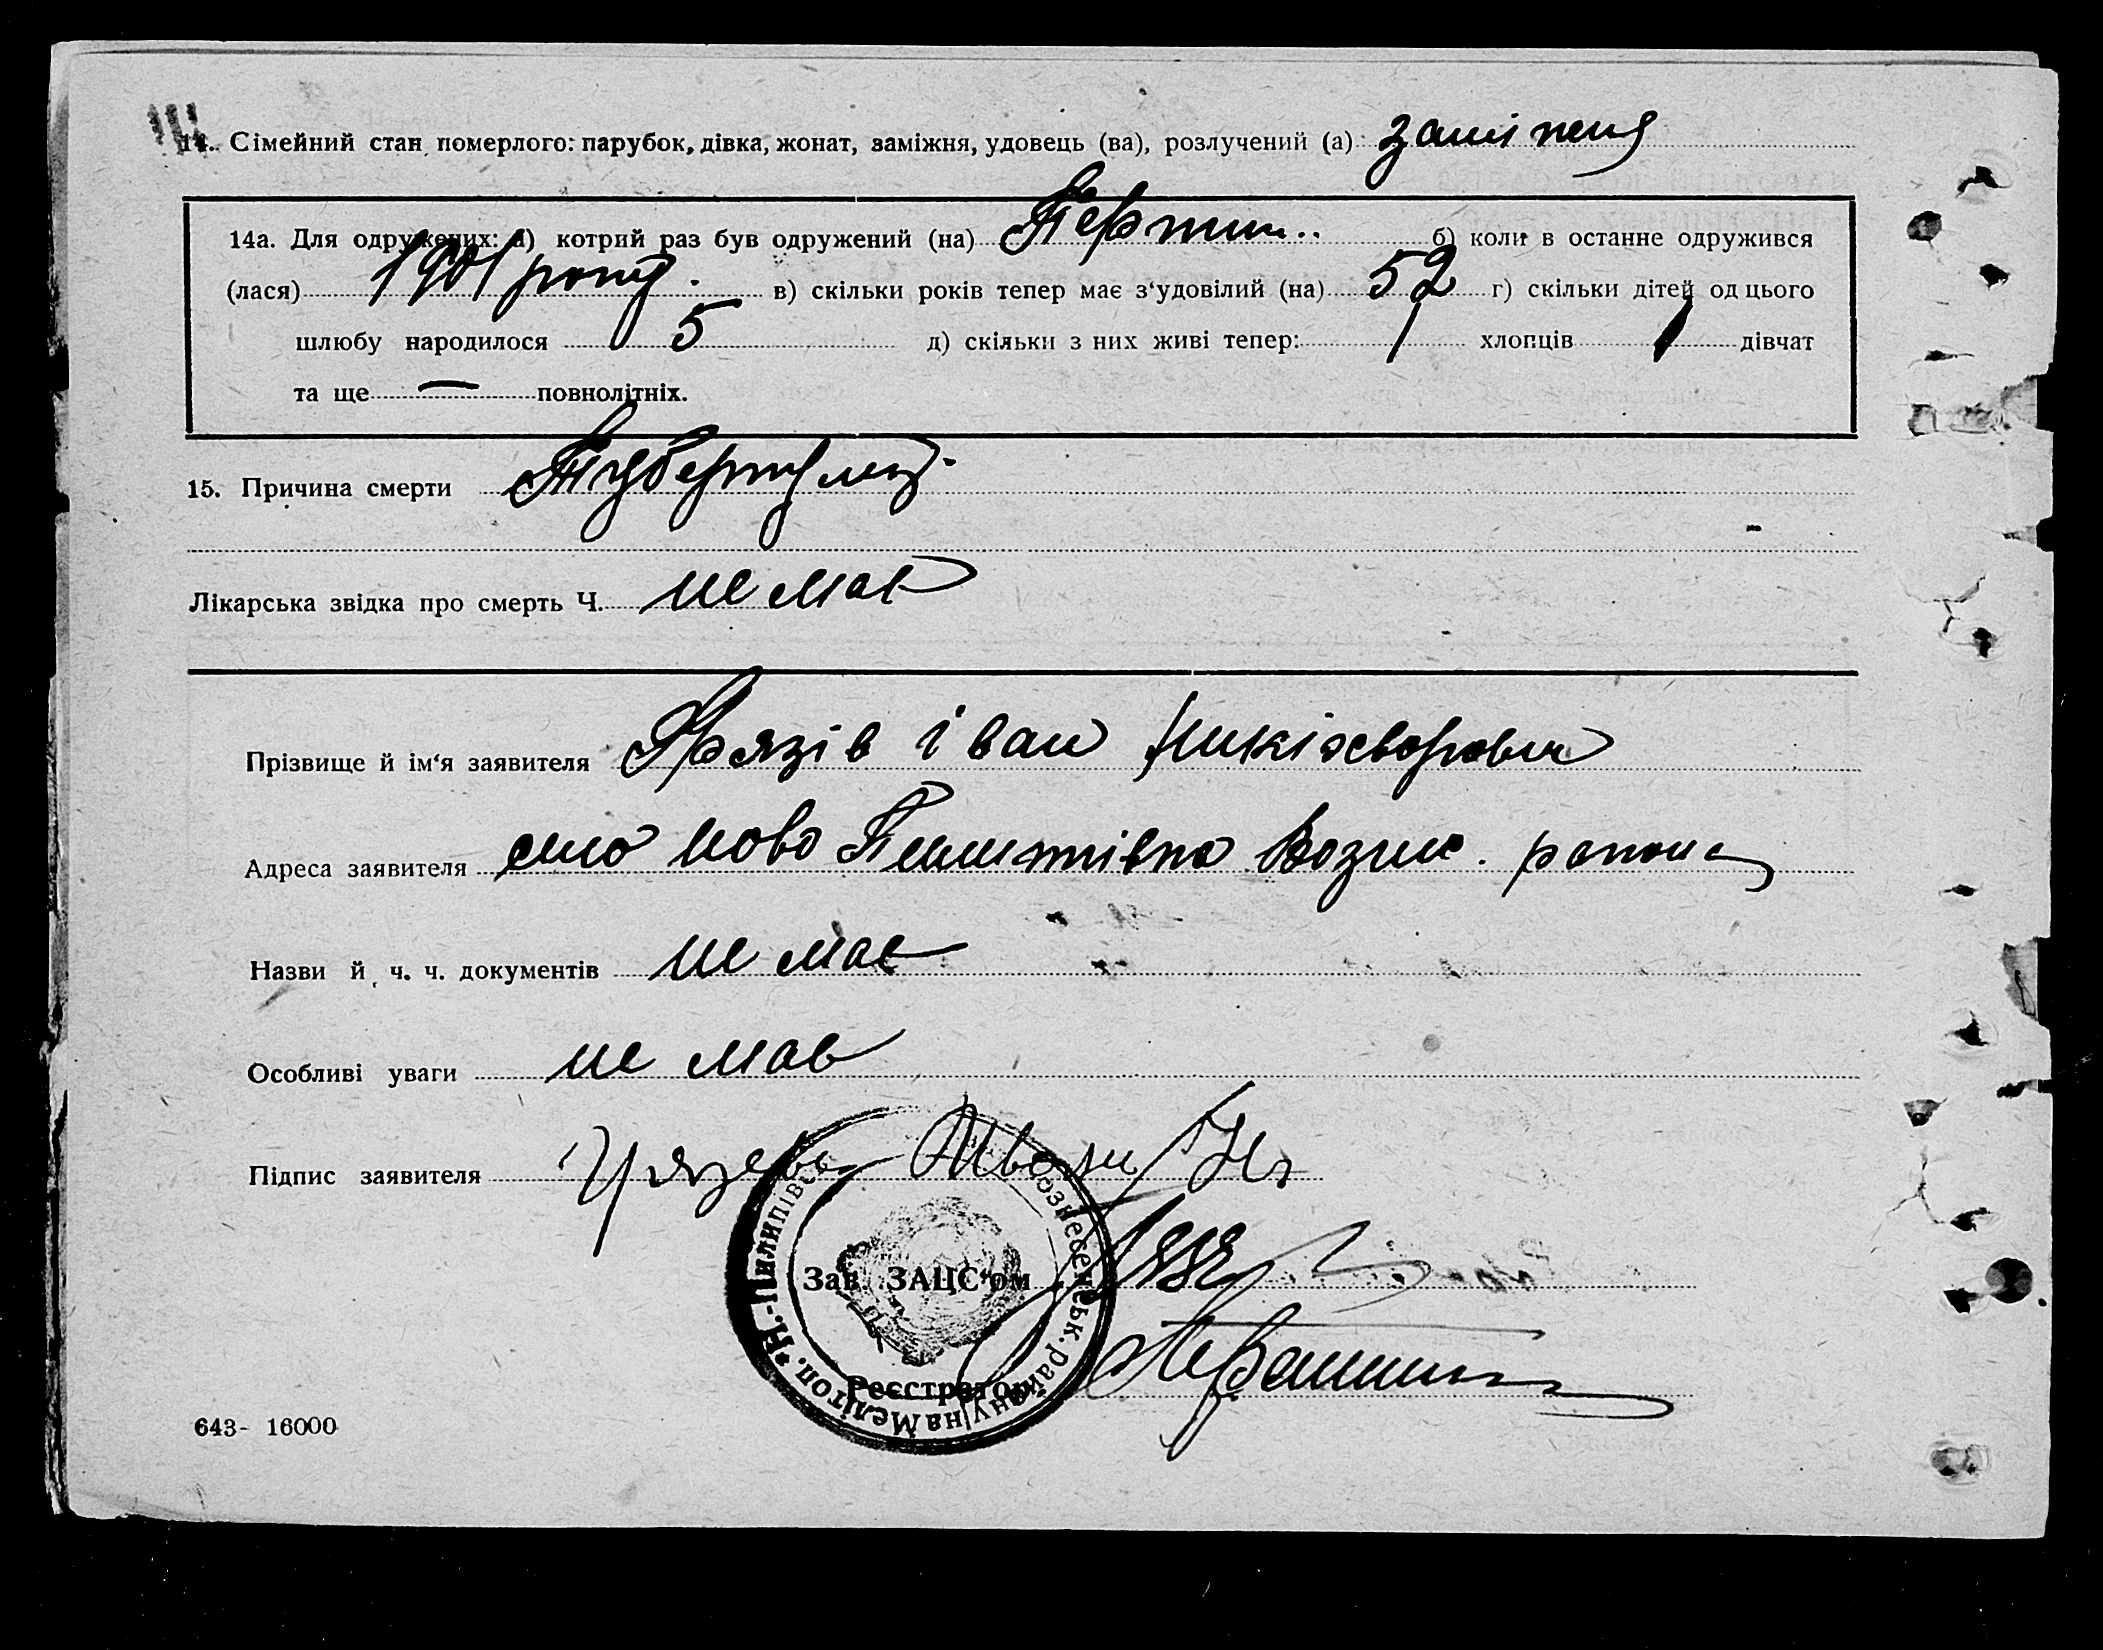 14. Сімейний стан померлого: парубок, дівка, жонат, заміжня, удовець (ва), розлучений (а) заміжня
14а. Для одружених: а) котрий раз був одружений (на) Перший б) коли в останне одружився
(лася) 1901 року. в) скільки років тепер має з‘удовілий (на) 52 г) скільки дітей од цього
шлюбу народилося 5 д) скільки з них живі тепер: 1 хлопців 1 дівчат
та ще — повнолітніх.
15. Причина смерти Туберкульоз
Лікарська звідка про смерть Ч. не має
Прізвище й ім‘я заявителя Грязів Іван Никіхворович
Адреса заявителя село Ново Пилипівка Возне. района
Назви й ч. ч. документів не має
Особливі уваги не має
Підпис заявителя Грязев Иван Н.
Зав. ЗАЦС‘ом
Реєстратор
Н.-Пилипівськ Вознесенськ. району на Мелітоп.
643- 16000